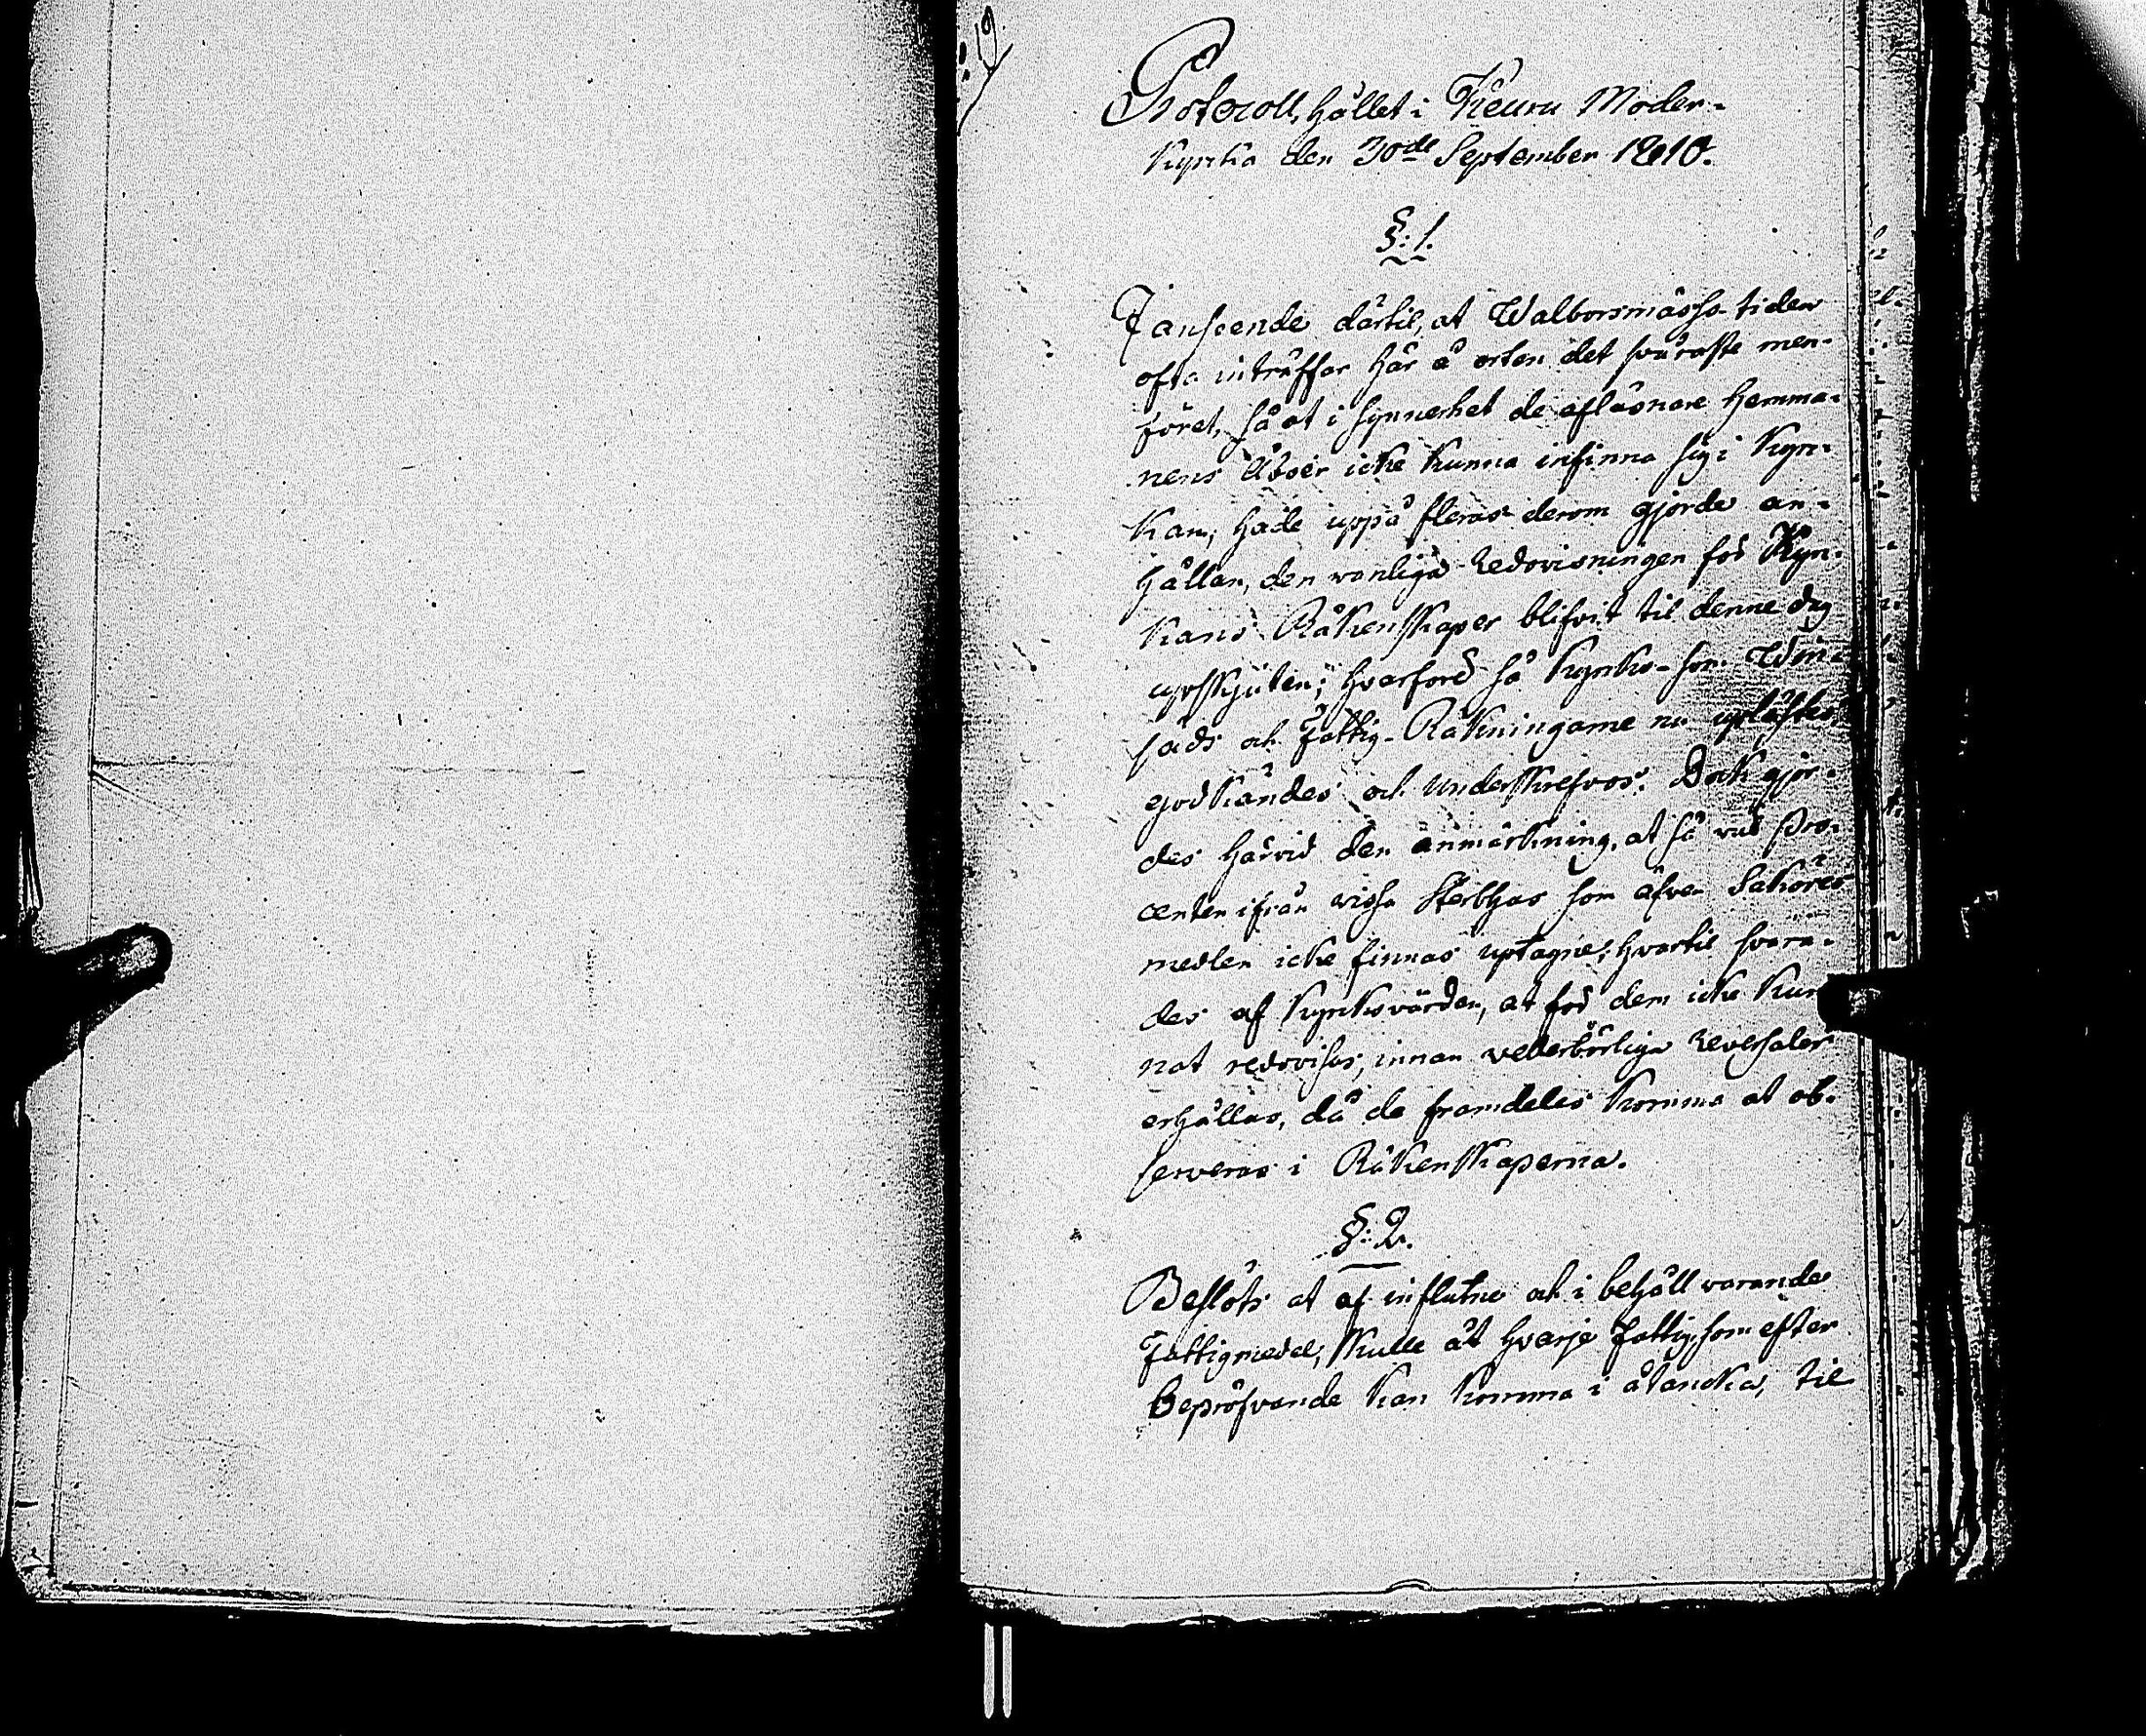 19.
Protocoll, hållet i Keuru Moder-
kyrka den 30de September 1810.
§: 1.
I anseende därtil, at Walborsmässo-tiden
ofta inträffar här å orten det svåraste men-
föret, så at i synnerhet de aflägsnare Hemma-
nens Åboer icke kunna infinna sig i Kyr-
kan, hade uppå fleras derom gjorde an-
hållan, den vanliga Redovisningen för Kyr-
kans Räkenskaper blifvit til denne dag
upskjuten; hvarföre så Kyrko- som Win-
säds och Fattig-Räkningarne nu uplästes
godkändes och underskrefvos. Dock gjor-
des härvid den anmärkning, at så väl Pro-
centen ifrån vissa Sterbhus som äfven Saköres
medlen icke finnas uptagne; hvartil svara-
des af Kyrkovärden, at för dem icke kun
nat redovisas, innan vederbörliga Reversaler
erhållas, då de framdeles komma at ob-
serveras i Räkenskaperna.
§: 2.
Beslöts at af influtne och i behåll varande
Fattigmedel, skulle åt hvarje fattig, som efter
bepröfvande kan komma i åtancka, til